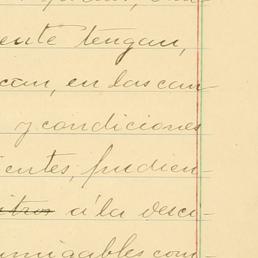 ente tengan,
can, en las can-
y condiciones
entes, pudien-
a la desti-
amigables com-